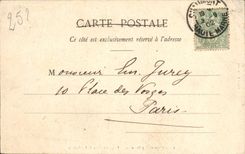 252
CARTE POSTALE
Ce côté est exclusivement réservé à l'adresse
HAUTE MARNE
Monsieur Em. Jurcy
10 Place des Vosges
Paris